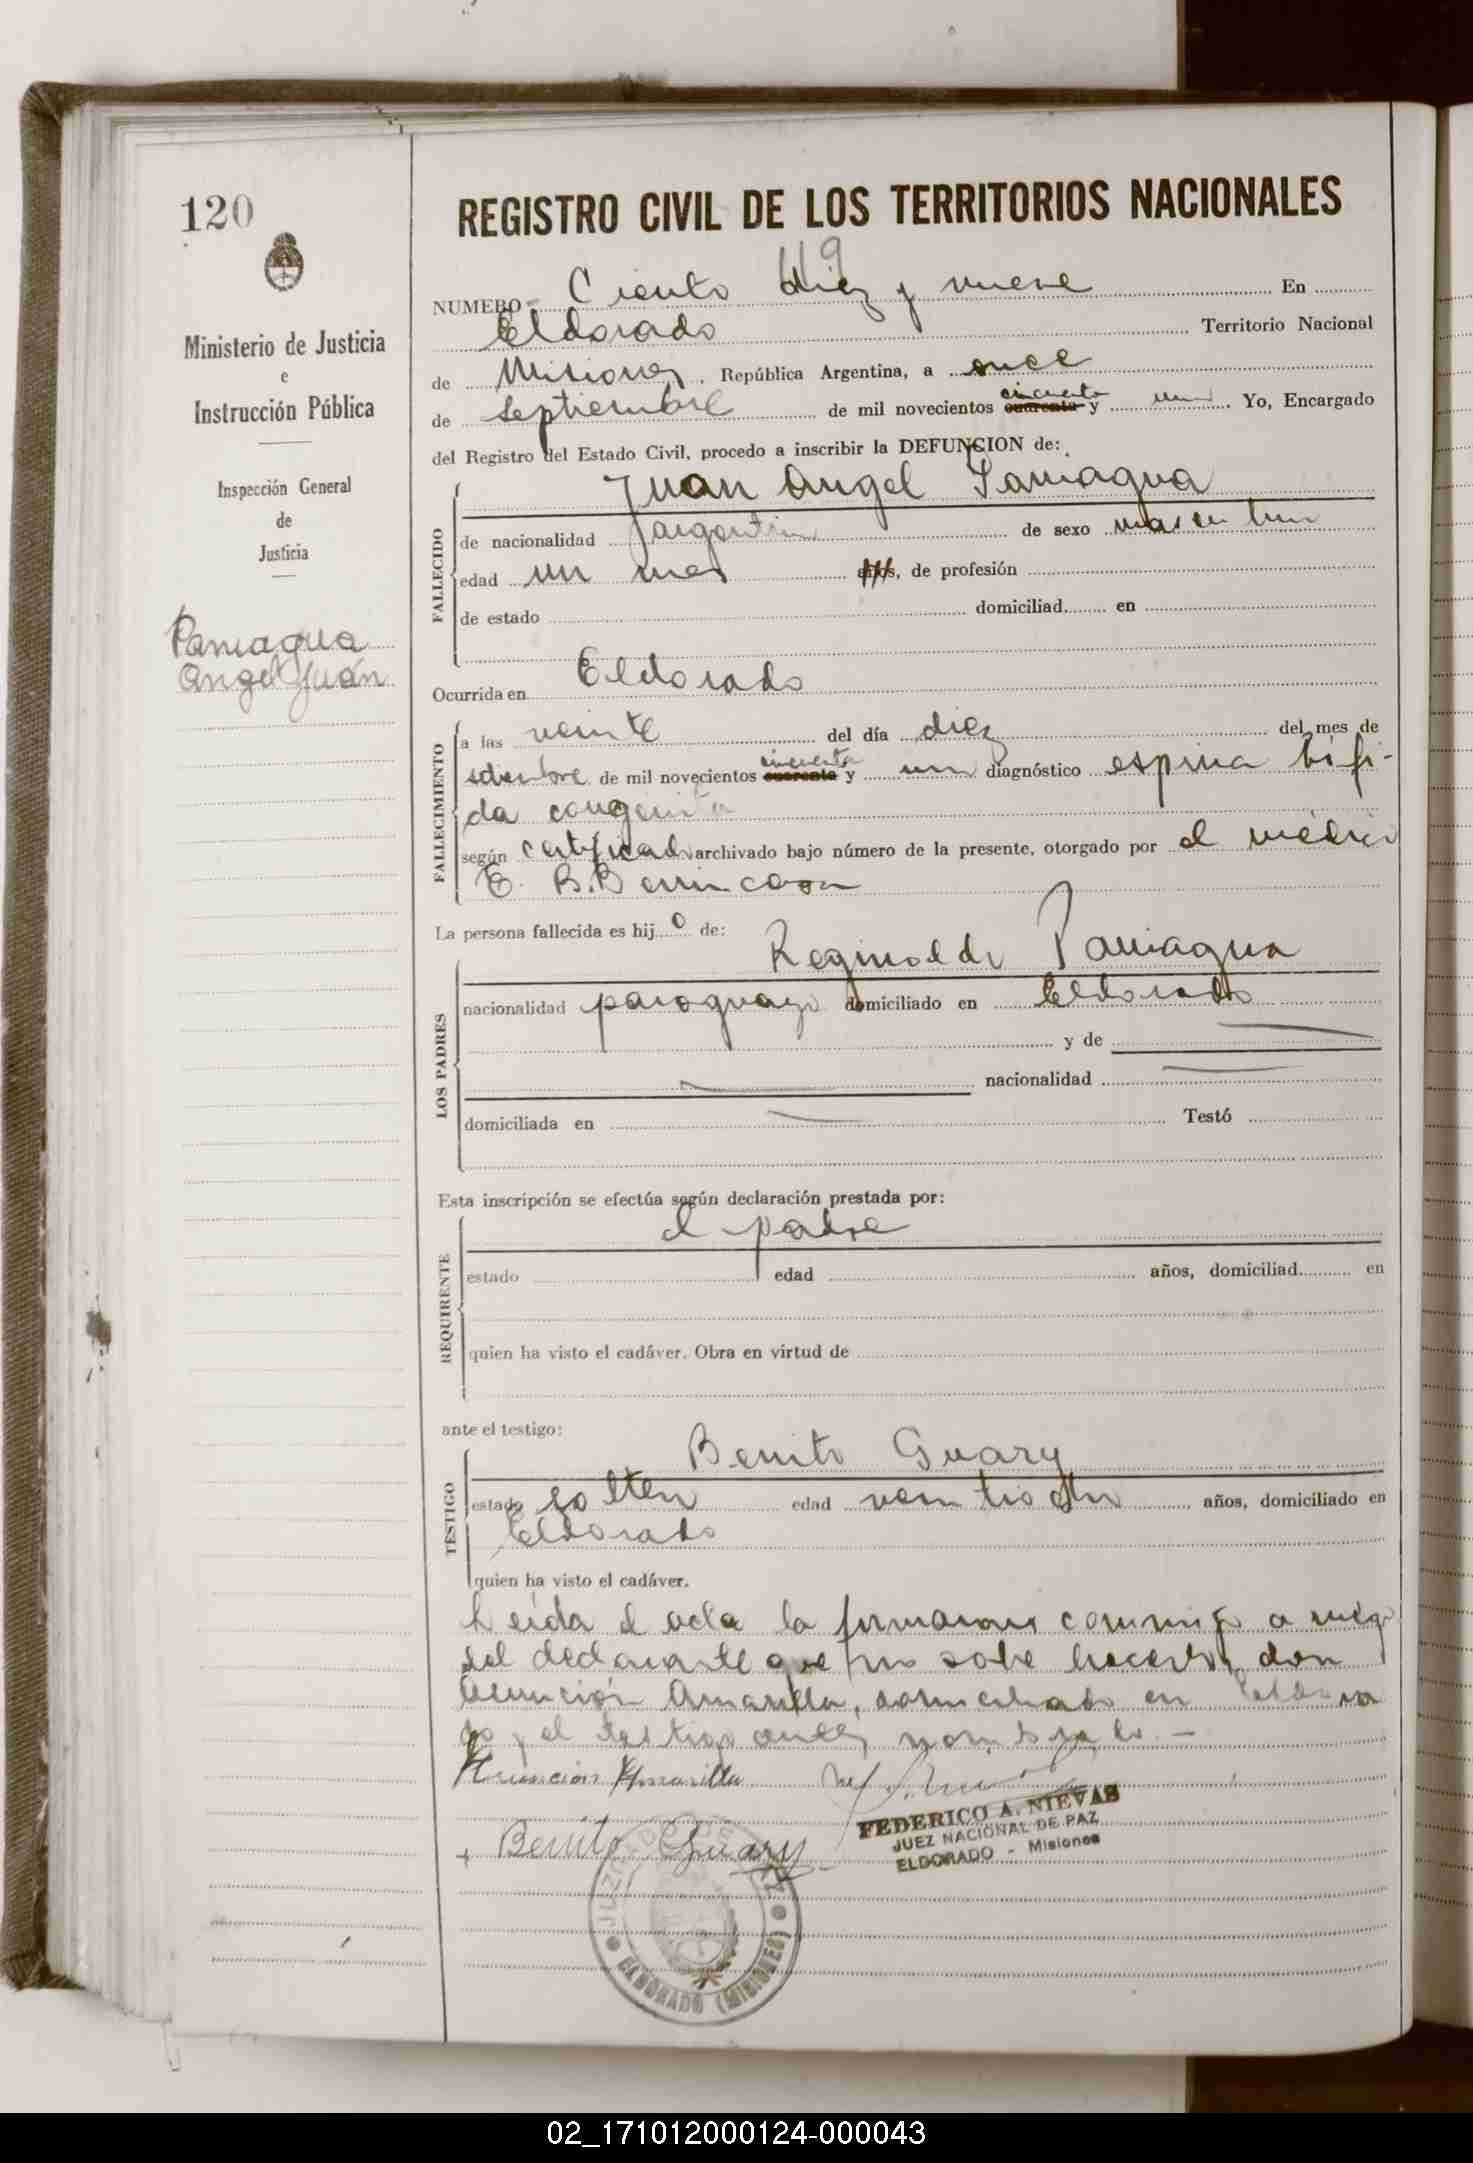 120
REGISTRO CIVIL DE LOS TERRITORIOS NACIONALES
119
NUMERO Ciento diez y nueve En
Eldorado Territorio Nacional
Ministerio de Justicia
e
Instrucción Pública
Inspección General
de
Justicia
de Misiones, República Argentina, a once
de septiembre de mil novecientos cincuenta cuarenta y uno. Yo, Encargado
del Registro del Estado Civil, procedo a inscribir la DEFUNCION de:
Juan Angel Paniagua
FALLECIDO
de nacionalidad argentin de sexo masculino
edad un mes años, de profesión
de estado domiciliad en
Paniagua
Angel Juan
Ocurrida en Eldorado
FALLECIMIENTO
a las veinte del día diez del mes de
setiembre de mil novecientos cincuenta cuarenta y un diagnóstico espina bifi-
da congenita
según certificado archivado bajo número de la presente, otorgado por el médico
E. B.
La persona fallecida es hijo de:
Reginaldo Paniagua
LOS PADRES
nacionalidad paraguayo domiciliado en Eldorado
y de
nacionalidad
domiciliada en Testó
Esta inscripción se efectúa según declaración prestada por:
el padre
REQUIRENTE
estado edad años, domiciliad en
quien ha visto el cadáver. Obra en virtud de
ante el testigo:
Benito Guary
TESTIGO
estado solter edad veintiocho años, domiciliado en
Eldorado
quien ha visto el cadáver.
Leída el acta la firmaron conmigo a ruego
del declarante que no sabe hacerlo, don
Asunción Amarilla, domiciliado en Eldora
do y el testigo antes nombrado. -
Asunción Amarilla
FEDERICO A. NIEVAS
JUEZ NACIONAL DE PAZ
ELDORADO - Misiones
Benito Guary
JUZGADO DE PAZ
ELDORADO (MISIONES)
02_171012000124-000043